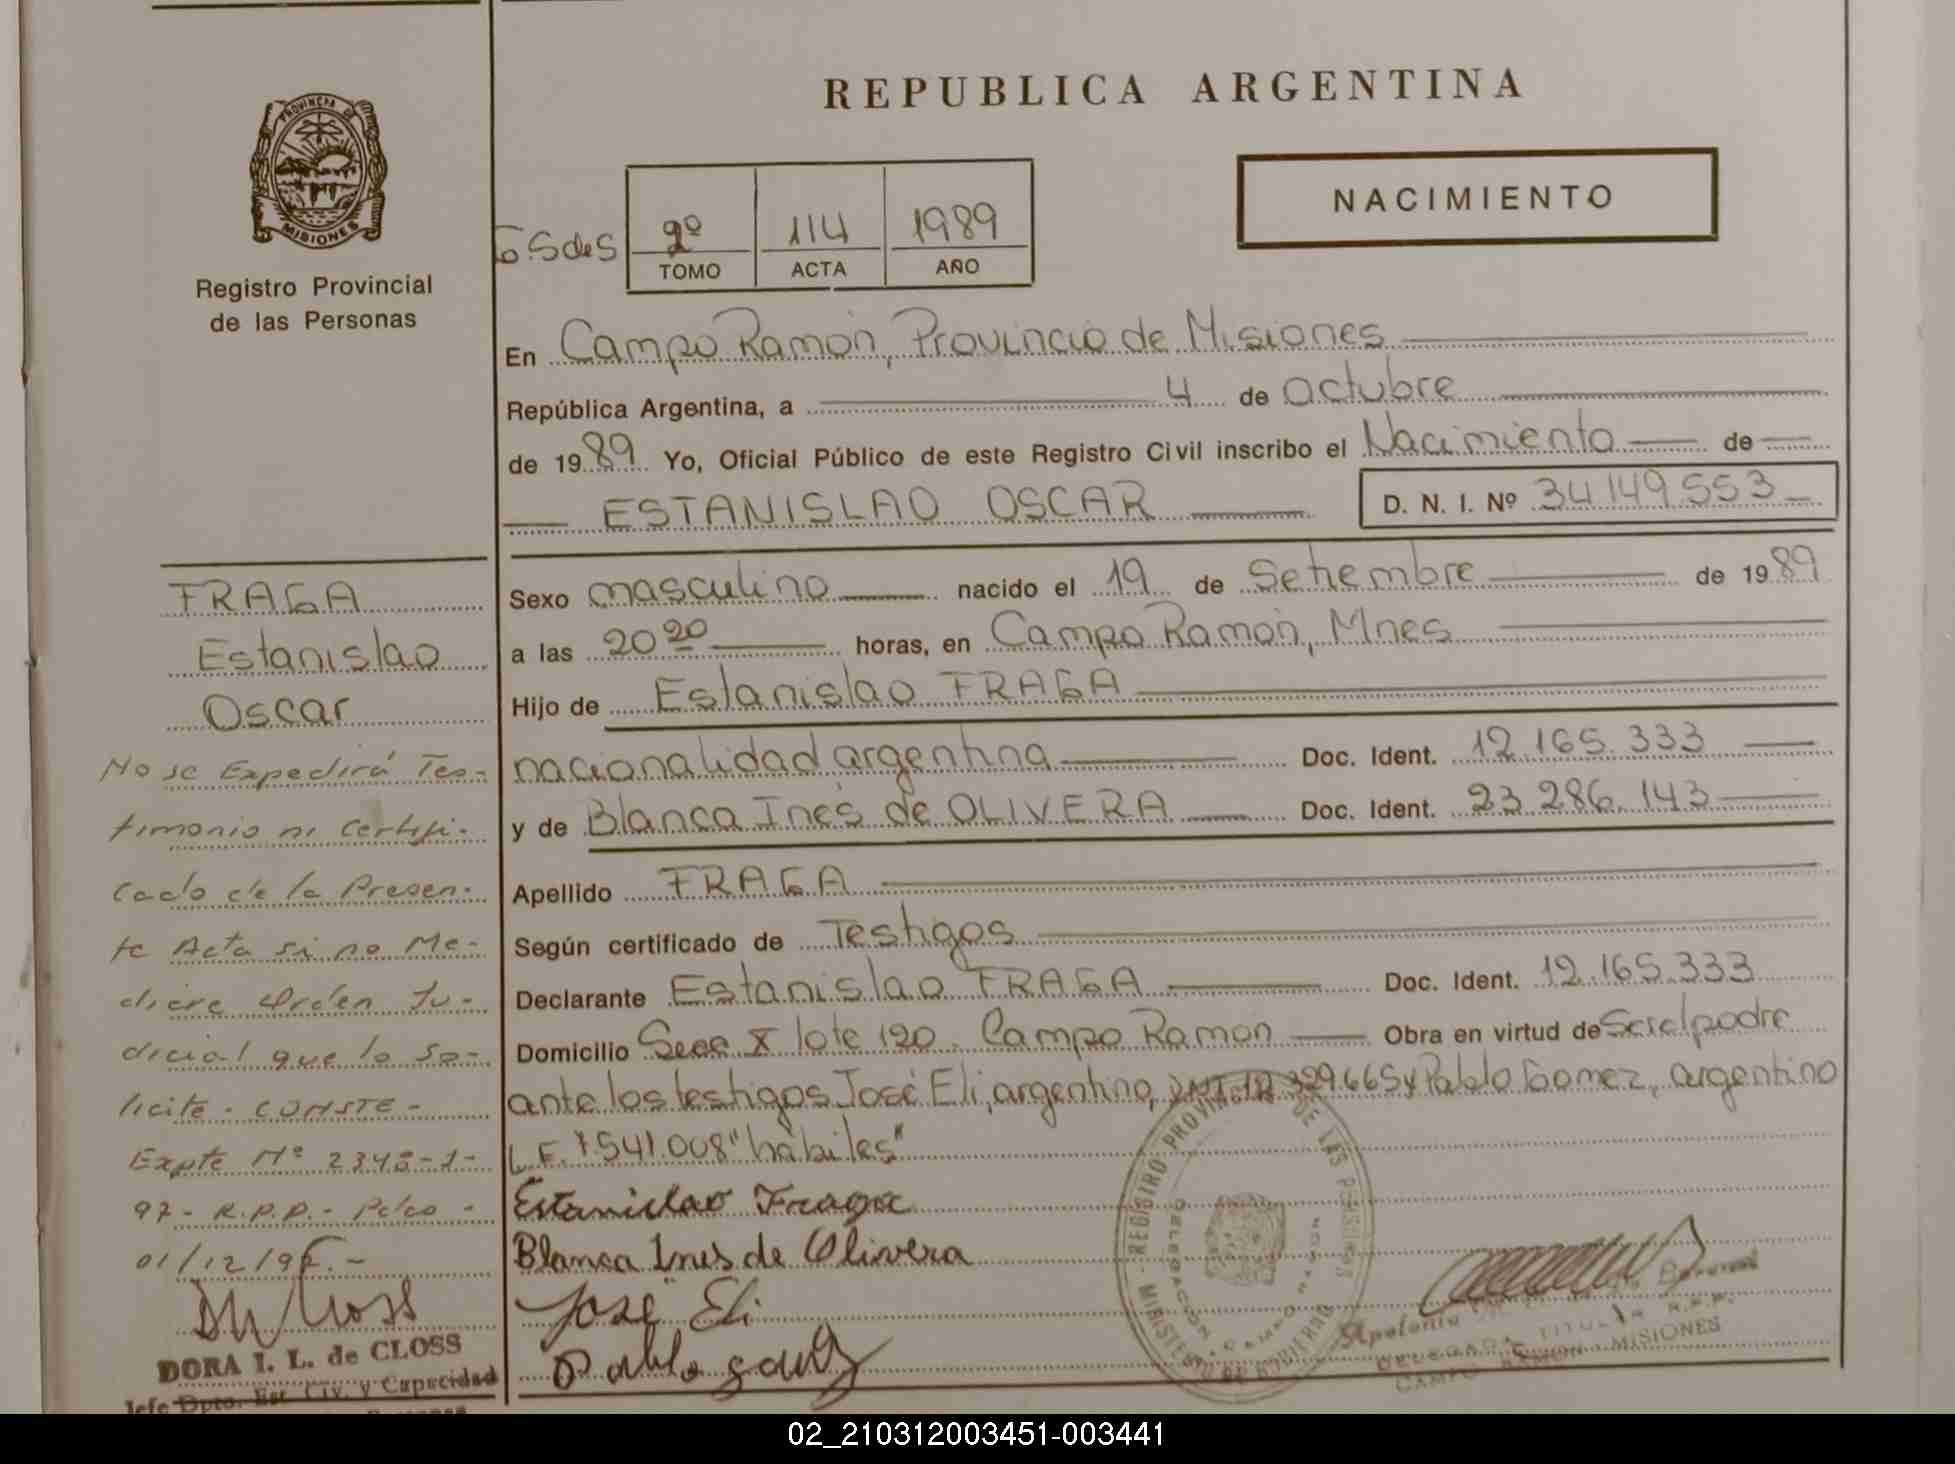 REPUBLICA ARGENTINA
NACIMIENTO
PROVINCIA DE
MISIONES
Registro Provincial
de las Personas
2º 114 1989
TOMO ACTA AÑO
En Campo Ramón, Provincia de Misiones
República Argentina, a 4 de octubre
de 1989 Yo, Oficial Público de este Registro Civil inscribo el Nacimiento de
ESTANISLAO OSCAR D. N. I. Nº 34.149.553
Sexo masculino nacido el 19 de Setiembre de 1989
a las 20 20 horas, en Campo Ramón, Mnes
Hijo de Estanislao FRAGA
nacionalidad argentina Doc. Ident. 12.165.333
y de Blanca Inés de OLIVERA Doc. Ident. 23.286.143
Apellido FRAGA
Según certificado de Testigos
Declarante Estanislao FRAGA Doc. Ident. 12.165.333
Domicilio Secc X lote 120. Campo Ramón Obra en virtud de Ser el padre
ante los testigos José Eli, argentino, y Pablo Gomez, argentino
L.E. 7.541.008 "hábiles"
Estanislao Fraga
Blanca Ines de Olivera
José Eli
Pablo
REGISTRO PROVINCIAL DE LAS PERSONAS
MINISTERIO DE GOBIERNO
DELEGACIÓN
DELEGADA TITULAR R.P.P.
CAMPO RAMON MISIONES
FRAGA
Estanislao
Oscar
No se Expedirá Tes-
timonio ni Certifi-
cado de la Presen-
te Acta si no Me-
diere Orden Ju-
dicial que lo So-
licite - CONSTE -
Expte Nº 2348-1-
97 - R.P.P. - Pdas -
01/12/97.-
DORA I. L. de CLOSS
Jefe Dpto. Est. Civ. y Capacidad
02_210312003451-003441